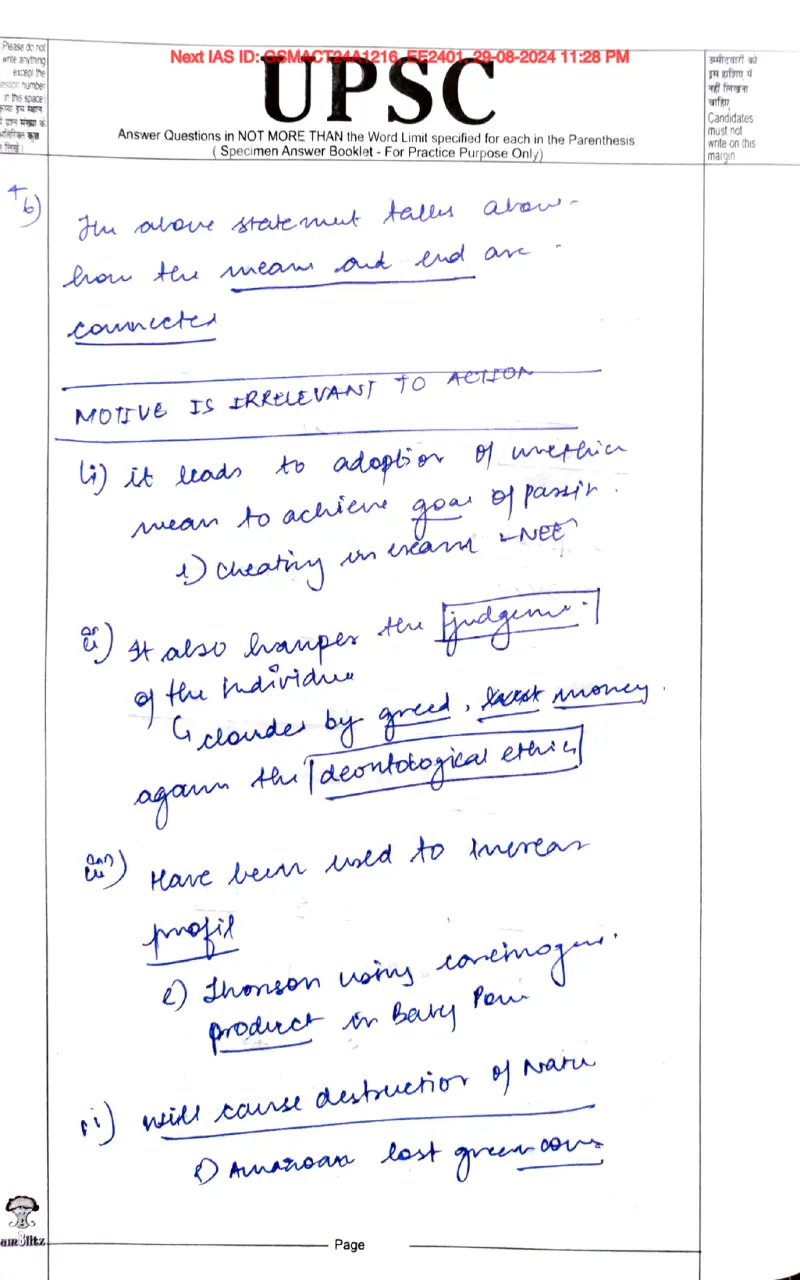 Please do not
write anything
except the
question number
in this space
Next IAS ID: GSMACT24A1216_EE2401_29-08-2024 11:28 PM
UPSC
Answer Questions in NOT MORE THAN the Word Limit specified for each in the Parenthesis
( Specimen Answer Booklet - For Practice Purpose Only)
उम्मीदवारों को
इस हाशिए में
नहीं लिखना
चाहिए
Candidates
must not
write on this
margin
b)
The above statement talks about
how the means and end are
connected
MOTIVE IS IRRELEVANT TO ACTION
(i) it leads to adoption of unethica
mean to achieve goal of passin
Cheating in exam NEET
ii) It also hampes the judgemen
of the Individua
clouded by greed, money
against the deontological ethics
iii) Have been used to increas
profit
Jhonson using carcinogeni
product in Baby Pow
will cause destruction of Natu
Amazoan lost green cov
Page